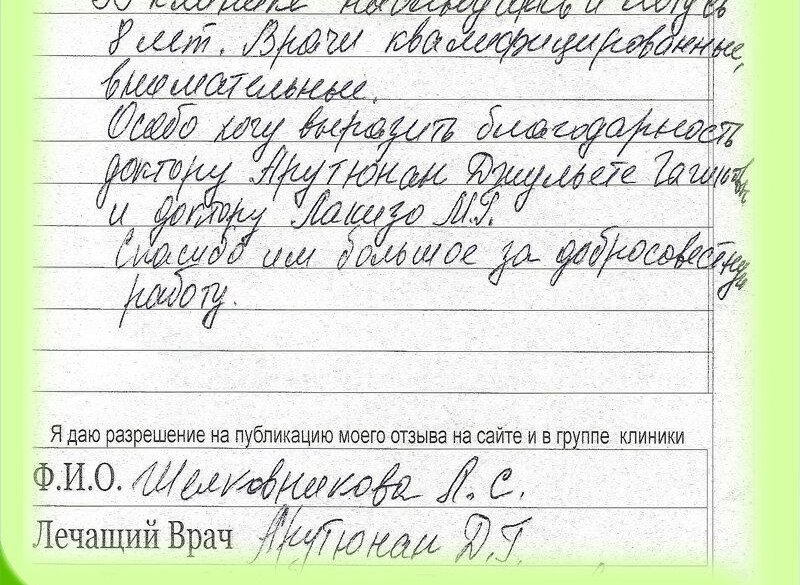 В клинике наблюдаюсь и лечусь
8 лет. Врачи квалифицированные,
внимательные.
Особо хочу выразить благодарность
доктору Арутюнан Джульете Гагиковне
и доктору Лакизо М.Г.
Спасибо им большое за добросовестную
работу.
Я даю разрешение на публикацию моего отзыва на сайте и в группе клиники
Ф.И.О. Шелковникова Л. С.
Лечащий Врач Арутюнан Д.Г.